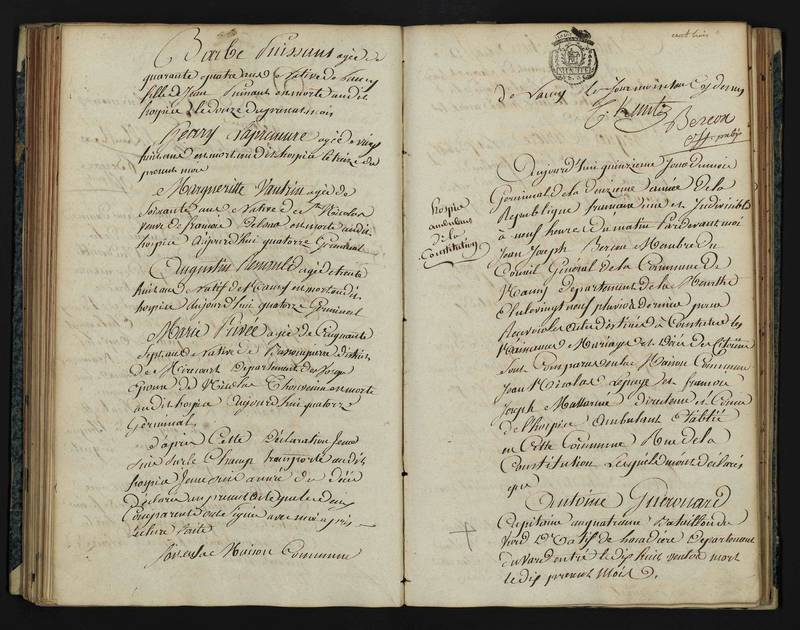 Barbe Puissant agée de
quarante quatre ans Native de Nancy
fille de Jean Puissant est morte audit
hospice le douze du présent mois
Henry Lapremiere agé de vingt
huit ans est mort audit hospice le treize du
present mois
Marguerite Vautrin agée de
Soixante ans Native de St Nicolas
veuve de françois est morte audit
hospice aujourd'hui quatorze Germinal
Augustin agé de trente
huit ans Natif de Nancy est mort audit
hospice aujourd'hui quatorze Germinal
Marie Privée agée de Cinquante
Sept ans Native de district
de Mirecourt Departement des Vosges
Epouse de Nicolas Thouvenin est morte
audit hospice aujourd'hui quatorze
Germinal
d'après Cette Déclaration Je me
suis sur le Champ transporté audit
hospice Je me suis assuré du Décès
Declaré un present acte que les deux
Comparents ont Signé avec moi après
Lecture faite
fait en la Maison Commune
cent trois
de Nancy les Jour mois et an Cy dessus
Bercon
off. public
hospice
ambulant
de la
Constitution
Aujourd'hui quinzieme Jour du mois
Germinal de la deuxieme année de la
Republique francaise une et Indivisible
à neuf heures du matin Pardevant moi
Jean Joseph Bercon Membre du
Conseil Général de la Commune de
Nancy Departement de la Meurthe
Elu le vingt neuf pluviose dernier pour
Recevoir les actes destinés à Constater les
Naissances Mariages et Décès des Citoÿens
Sont Comparus en la Maison Commune
Jean Nicolas Lepage et francois
Joseph Directeur et
de l'hospice ambulant Etablie
en Cette Commune Rue de la
Constitution Lesquels m'ont déclarés
que
Antoine Guerouard
Capitaine au quatrieme Bataillon du
Nord Natif de Departement
du Vard entré le dix huit ventose mort
le dix present mois.